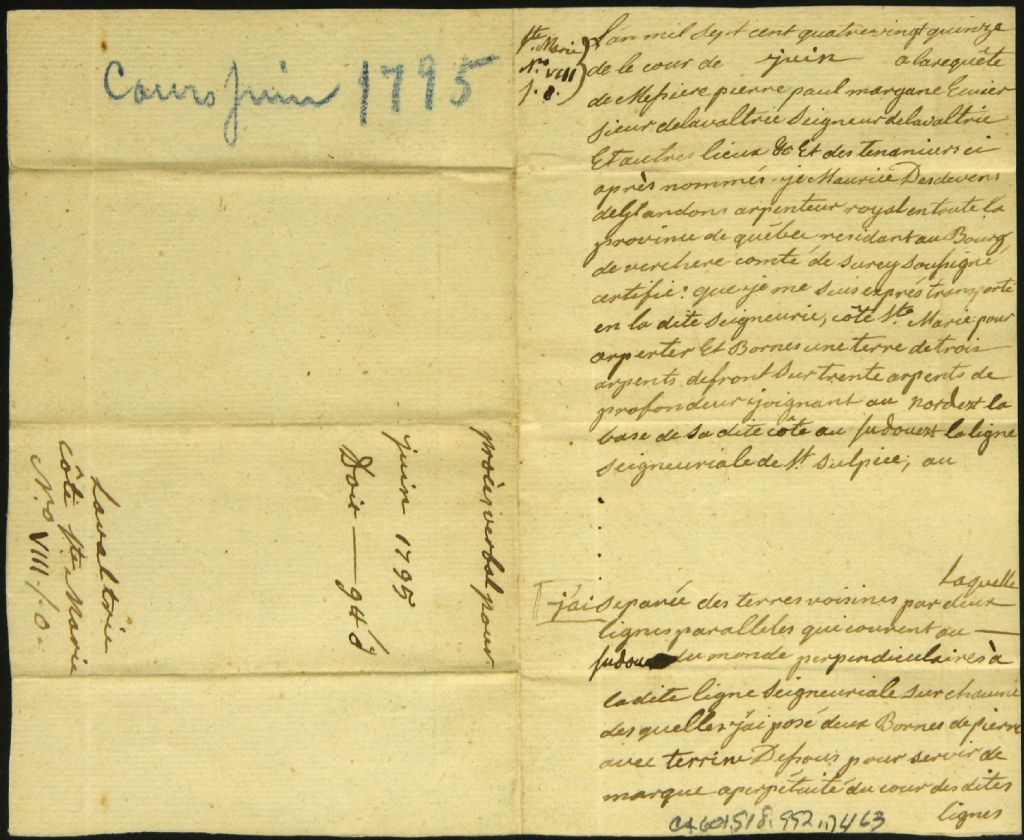 Cours juin 1795
procès verbal pour
juin 1795
Doit — 9# 6s
Lavaltrie
côté Ste Marie
No VIII
Ste Marie
No VIII
L'an mil sept cent quatrevingt quinze
de le cour de juin a la requête
de Messiere pierre paul margane Ecuier
sieur delavaltrie Seigneur delavaltrie
Et autres lieux &c Et des tenanciers ci
après nommés je Maurice Desdevens
deglandons arpenteur royal en toute la
province de québec residant au Bourg
de verchere comté de surey soussigné
certifie : que je me suis exprés transporté
en la dite Seigneurie, côté Ste Marie pour
arpenter Et Bornes une terre de trois
arpents de front sur trente arpents de
profondeur joignant au nordest la
base de sa dite côte au sudouest la ligne
seigneuriale de St Sulpice, au
Laquelle
j'ai separée des terres voisines par deux
lignes paralleles qui courent au —
du monde perpendiculaires à
la dite ligne seigneuriale sur chacune
des quelles j'ai posé deux Bornes de pierre
avec terrine Dessous pour servir de
marque a perpétuité du cour des dites
lignes